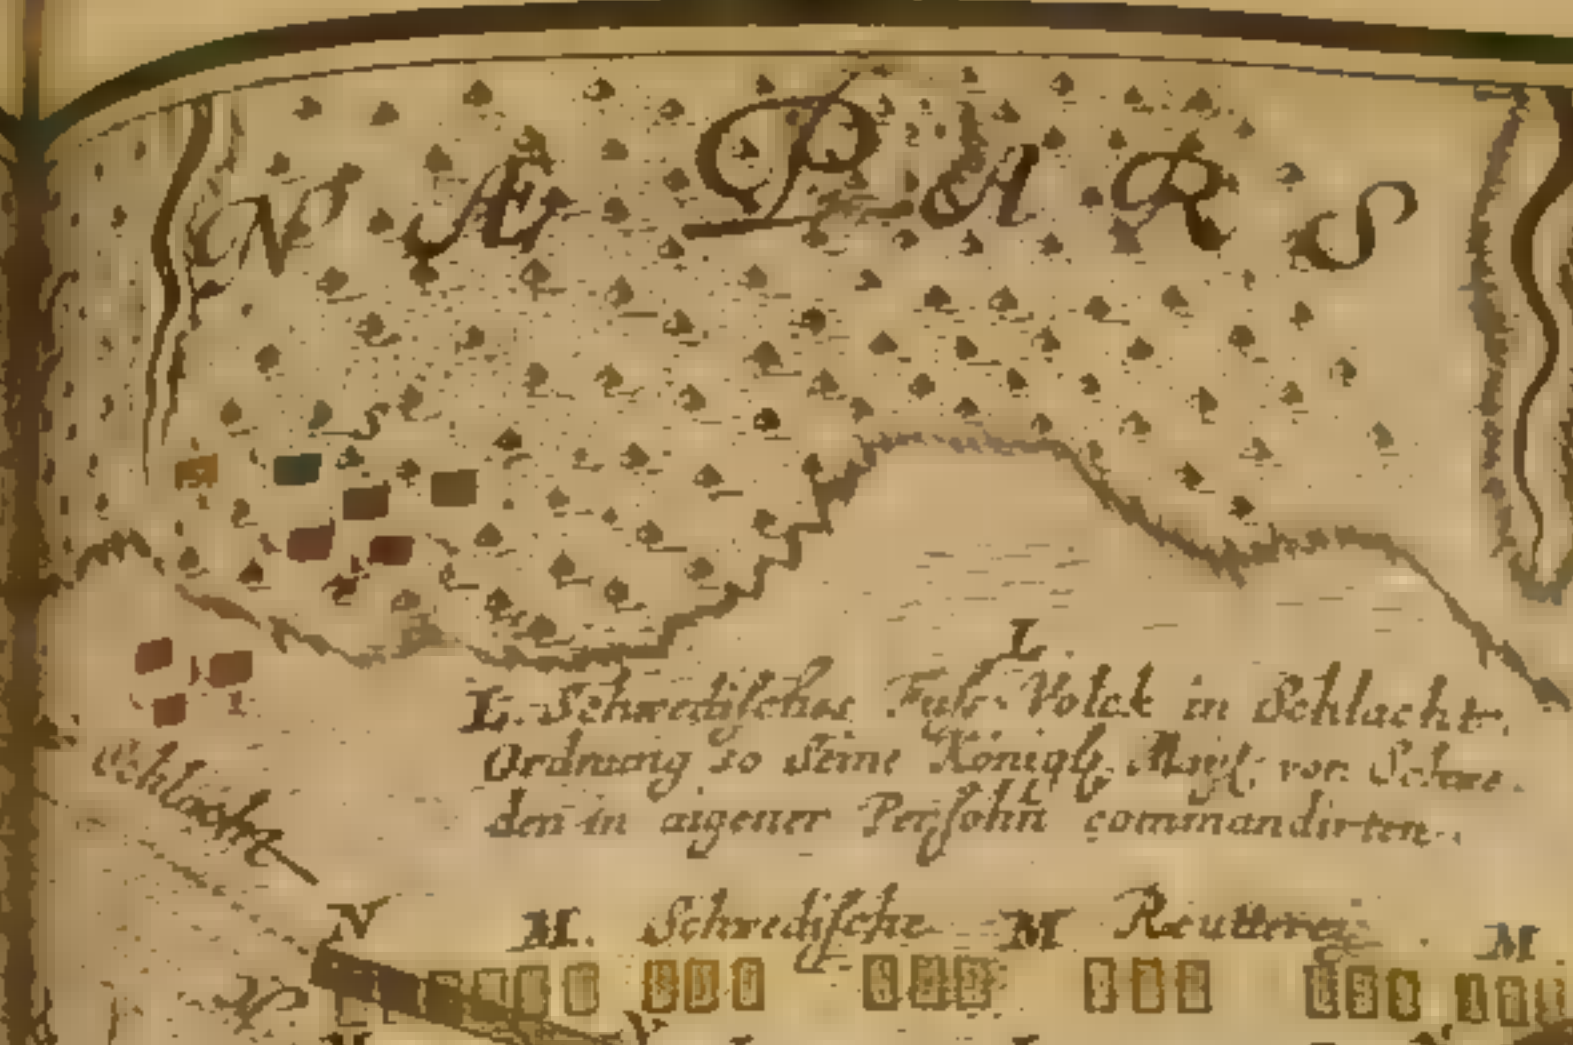 NÆ PARS
S
L.
L. Schwedisches Fuß-Volck in Schlacht
Ordnung so Seine Königl. Mayt. von Schwe-
den in aigener Persohn commandirten.
Schlacht
N M. Schwedische M Reutterei M